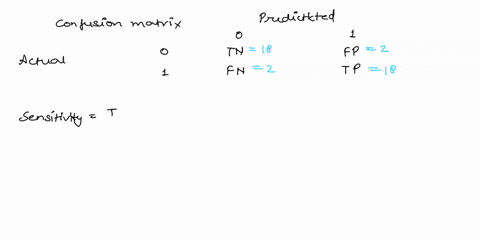 Confusion matrix Predictkted
0 1
Actual 0 TN = 18 FP = 2
1 FN = 2 TP = 18
Sensitivity = T